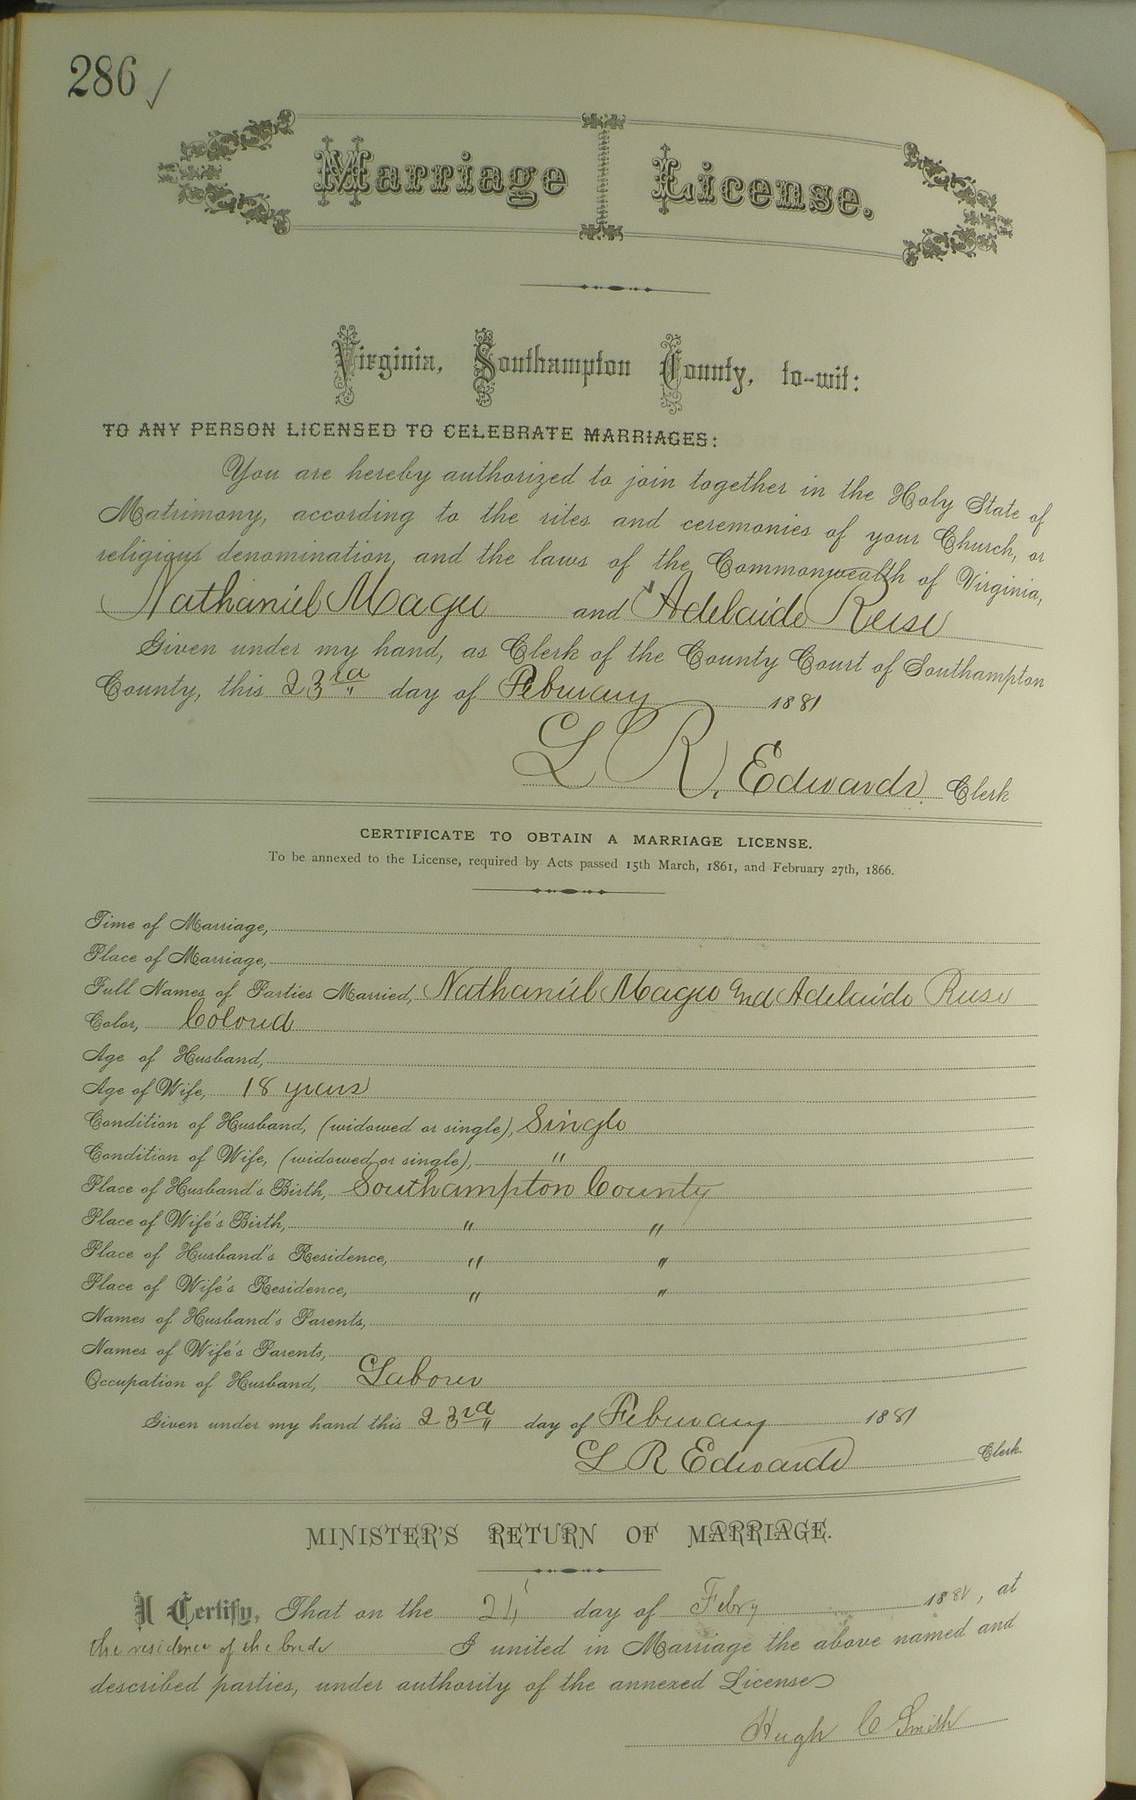 286 ✓
Marriage License.
Virginia, Southampton County, to-wit:
TO ANY PERSON LICENSED TO CELEBRATE MARRIAGES:
You are hereby authorized to join together in the Holy State of
Matrimony, according to the rites and ceremonies of your Church, or
religious denomination, and the laws of the Commonwealth of Virginia,
Nathaniel Magee and Adelaide Reese
Given under my hand, as Clerk of the County Court of Southampton
County, this 23rd day of February 1881
L R. Edwards. Clerk
CERTIFICATE TO OBTAIN A MARRIAGE LICENSE.
To be annexed to the License, required by Acts passed 15th March, 1861, and February 27th, 1866.
Time of Marriage,
Place of Marriage,
Full Names of Parties Married, Nathaniel Magee and Adelaide Reese
Color, Colored
Age of Husband,
Age of Wife, 18 years
Condition of Husband, (widowed or single), Single
Condition of Wife, (widowed or single), "
Place of Husband's Birth, Southampton County
Place of Wife's Birth, " "
Place of Husband's Residence, " "
Place of Wife's Residence, " "
Names of Husband's Parents,
Names of Wife's Parents,
Occupation of Husband, Laborer
Given under my hand this 23rd day of February 1881
L R Edwards Clerk.
MINISTER'S RETURN OF MARRIAGE.
I Certify, That on the day of Febry 1881, at
the residence of the bride I united in Marriage the above named and
described parties, under authority of the annexed License
Hugh C Smith